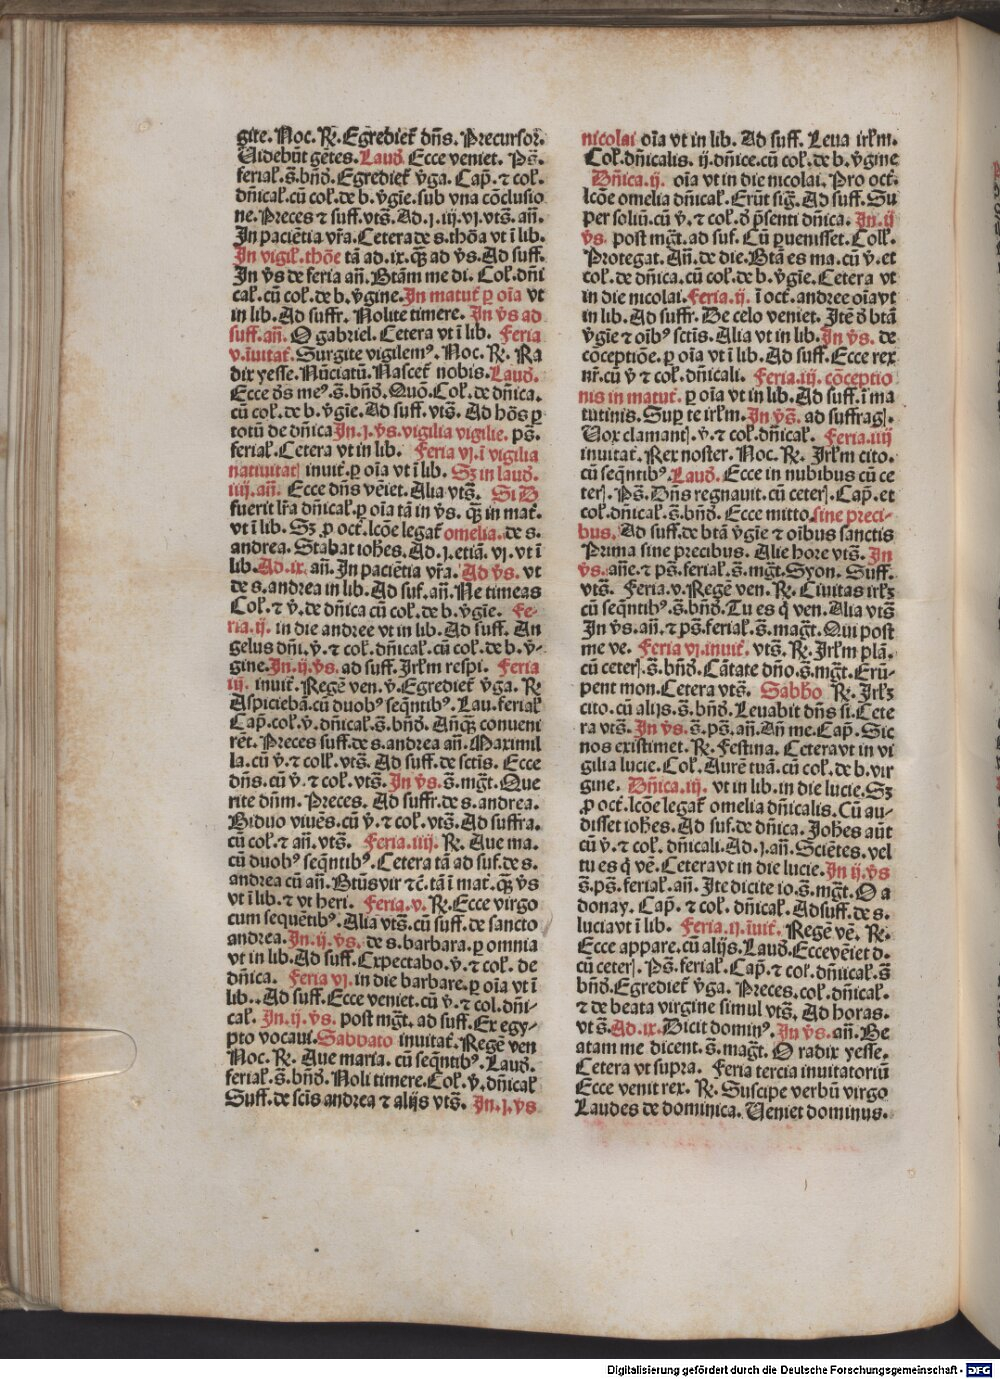 gite. Noc. R̃. Egrediet̃ dñs. Precursor̃.
Videbũt gẽtes. Laud̃. Ecce veniet. Ps̃.
feriał. s̃. bñd̃. Egrediet̃ ṽga. Cap̃. ⁊ coł.
dñicał. cũ coł. de b. ṽgĩe. sub vna cõclusio
ne. Preces ⁊ suff. vts̃. Ad. j. iij. vj. vts̃. añ.
In paciẽtia vr̃a. Cetera de s. thõa vt ĩ lib.
In vigił. thõe tã ad. ix. q̃ꝫ ad ṽs. Ad suff.
In ṽs de feria añ. Btãm me di. Coł. dñi
cał. cũ coł. de b. ṽgine. In matut̃ ꝑ oĩa vt
in lib. Ad suffr̃. Nolite timere. In ṽs ad
suff. añ. O gabriel. Cetera vt ĩ lib. Feria
v. ĩuitat̃. Surgite vigilemꝰ. Noc. R̃. Ra
dix yesse. Nũciatũ. Nascet̃ nobis. Laud̃.
Ecce d̃s meꝰ. s̃. bñd̃. Quõ. Coł. de dñica.
cũ coł. de b. ṽgĩe. Ad suff. vts̃. Ad hõs ꝑ
totũ de dñica In. j. ṽs. vigilia vigilie. ps̃.
feriał. Cetera vt in lib. Feria vj. ĩ vigilia
natiuitatꝭ inuit̃. ꝑ oĩa vt ĩ lib. Sꝫ in laud̃.
iiij. añ. Ecce dñs vẽiet. Alia vts̃. Si D
fuerit lr̃a dñicał. ꝑ oĩa tã in ṽs. q̃ꝫ in mat̃.
vt ĩ lib. Sꝫ ꝓ oct̃. lcõe legat̃ omelia. de s.
andrea. Stabat ioh̃es. Ad. j. etiã. vj. vt ĩ
lib. Ad. ix. añ. In paciẽtia vr̃a. Ad ṽs. vt
de s. andrea in lib. Ad suf. añ. Ne timeas
Coł. ⁊ ṽ. de dñica cũ coł. de b. ṽgĩe. Fe-
ria. ij. in die andree vt in lib. Ad suff. An
gelus dñi. ṽ. ⁊ coł. dñicał. cũ coł. de b. ṽ-
gine. In. ij. ṽs. ad suff. Irłm respi. Feria
iij. inuit̃. Regẽ ven. ṽ. Egrediet̃ ṽga. R̃
Aspiciebã. cũ duobꝰ seq̃ntibꝰ. Lau. feriał
Cap̃. coł. ṽ. dñicał. s̃. bñd̃. Añq̃ꝫ conueni
rẽt. Preces suff. de s. andrea añ. Maximil
la. cũ ṽ. ⁊ colł. vts̃. Ad suff. de sctĩs. Ecce
dñs. cũ ṽ. ⁊ coł. vts̃. In ṽs. s̃. mg̃t. Que
rite dñm. Preces. Ad suffr̃. de s. andrea.
Biduo viuẽs. cũ ṽ. ⁊ coł. vts̃. Ad suffra.
cũ coł. ⁊ añ. vts̃. Feria. iiij. R̃. Aue ma.
cũ duobꝰ seq̃ntibꝰ. Cetera tã ad suf. de s.
andrea cũ añ. Btũs vir ⁊c̃. tã ĩ mat̃. q̃ꝫ ṽs
vt ĩ lib. ⁊ vt heri. Feria. v. R̃. Ecce virgo
cum sequẽtibꝰ. Alia vts̃. cũ suff. de sancto
andrea. In. ij. ṽs. de s. barbara. ꝑ omnia
vt in lib. Ad suff. Expectabo. ṽ. ⁊ coł. de
dñica. Feria vj. in die barbare. ꝑ oĩa vt ĩ
lib.. Ad suff. Ecce veniet. cũ ṽ. ⁊ col. dñi-
cał. In. ij. ṽs. post mg̃t. ad suff. Ex egy-
pto vocaui. Sabbato inuitat̃. Regẽ ven
Noc. R̃. Aue maria. cũ seq̃ntibꝰ. Laud̃.
feriał. s̃. bñd̃. Noli timere. Coł. ṽ. dñicał
Suff. de scĩs andrea ⁊ alijs vts̃. In. j. ṽs
nicolai oĩa vt in lib. Ad suff. Leua irłm.
Coł. dñicalis. ij. dñice. cũ coł. de b. ṽgine
Dñica. ij. oĩa vt in die nicolai. Pro oct̃.
lcõe omelia dñicał. Erũt sig̃. Ad suff. Su
per soliũ. cũ ṽ. ⁊ coł. d̃ p̃senti dñica. In. ij
ṽs. post mg̃t. ad suf. Cũ ꝑuenisset. Colł.
Protegat. Añ. de die. Btã es ma. cũ ṽ. et
coł. de dñica. cũ coł. de b. ṽgĩe. Cetera vt
in die nicolai. Feria. ij. ĩ oct̃. andree oĩa vt
in lib. Ad suffr̃. De celo veniet. Itẽ d̃ btã
ṽgĩe ⁊ oĩbꝰ sctĩs. Alia vt in lib. In ṽs. de
cõceptiõe. ꝑ oĩa vt ĩ lib. Ad suff. Ecce rex
nr̃. cũ ṽ ⁊ coł. dñicali. Feria. iij. cõceptio
nis in matut̃. ꝑ oĩa vt in lib. Ad suff. ĩ ma
tutinis. Suꝑ te irłm. In ṽs̃. ad suffragꝭ.
Vox clamantꝭ. ṽ. ⁊ coł. dñicał. Feria. iiij
inuitat̃. Rex noster. Noc. R̃. Irłm cito.
cũ seq̃ntibꝰ. Laud̃. Ecce in nubibus cũ ce
terꝭ. Ps̃. Dñs regnauit. cũ ceterꝭ. Cap̃. et
coł. dñicał. s̃. bñd̃. Ecce mitto. sine preci-
bus. Ad suff. de btã ṽgĩe ⁊ oĩbus sanctis
Prima sine precibus. Alie hore vts̃. In
ṽs. añe. ⁊ ps̃. feriał. s̃. mg̃t. Syon. Suff.
vts̃. Feria. v. Regẽ ven. R̃. Ciuitas irłꝫ
cũ seq̃ntibꝰ. s̃. bñd̃. Tu es q̃ ven. Alia vts̃
In ṽs. añ. ⁊ ps̃. feriał. s̃. mag̃t. Qui post
me ve. Feria vj. inuit̃. vts̃. R̃. Irłm plã.
cũ ceterꝭ. s̃. bñd̃. Cãtate dño. s̃. mg̃t. Erũ-
pent mon. Cetera vts̃. Sabb̃o R̃. Irłꝫ
cito. cũ alijs. s̃. bñd̃. Leuabit dñs si. Cete
ra vts̃. In ṽs. s̃. ps̃. añ. Añ me. Cap̃. Sic
nos existimet. R̃. Festina. Cetera vt in vi
gilia lucie. Coł. Aurẽ tuã. cũ coł. de b. vir
gine. Dñica. iij. vt in lib. in die lucie. Sꝫ
ꝓ oct̃. lcõe legat̃ omelia dñicalis. Cũ au-
disset ioh̃es. Ad suf. de dñica. Joh̃es aũt
cũ ṽ. ⁊ coł. dñicali. Ad. j. añ. Sciẽtes. vel
tu es q̃ vẽ. Cetera vt in die lucie. In ij. ṽs
s̃. ps̃. feriał. añ. Ite dicite io. s̃. mg̃t. O a
donay. Cap̃. ⁊ coł. dñicał. Ad suff. de s.
lucia vt ĩ lib. Feria. ij. ĩuit̃. Regẽ vẽ. R̃.
Ecce appare. cũ alijs. Laud̃. Ecce vẽiet d.
cũ ceterꝭ. Ps̃. feriał. Cap̃. ⁊ coł. dñiicał. s̃
bñd̃. Egrediet̃ ṽga. Preces. coł. dñicał.
⁊ de beata virgine simul vts̃. Ad horas.
vt s̃. Ad. ix. Dicit dominꝰ. In ṽs. añ. Be
atam me dicent. s̃. mag̃t. O radix yesse.
Cetera vt supra. Feria tercia inuitatoriũ
Ecce venit rex. R̃. Suscipe verbũ virgo
Laudes de dominica. Veniet dominus.
Digitalisierung gefördert durch die Deutsche Forschungsgemeinschaft - DFG